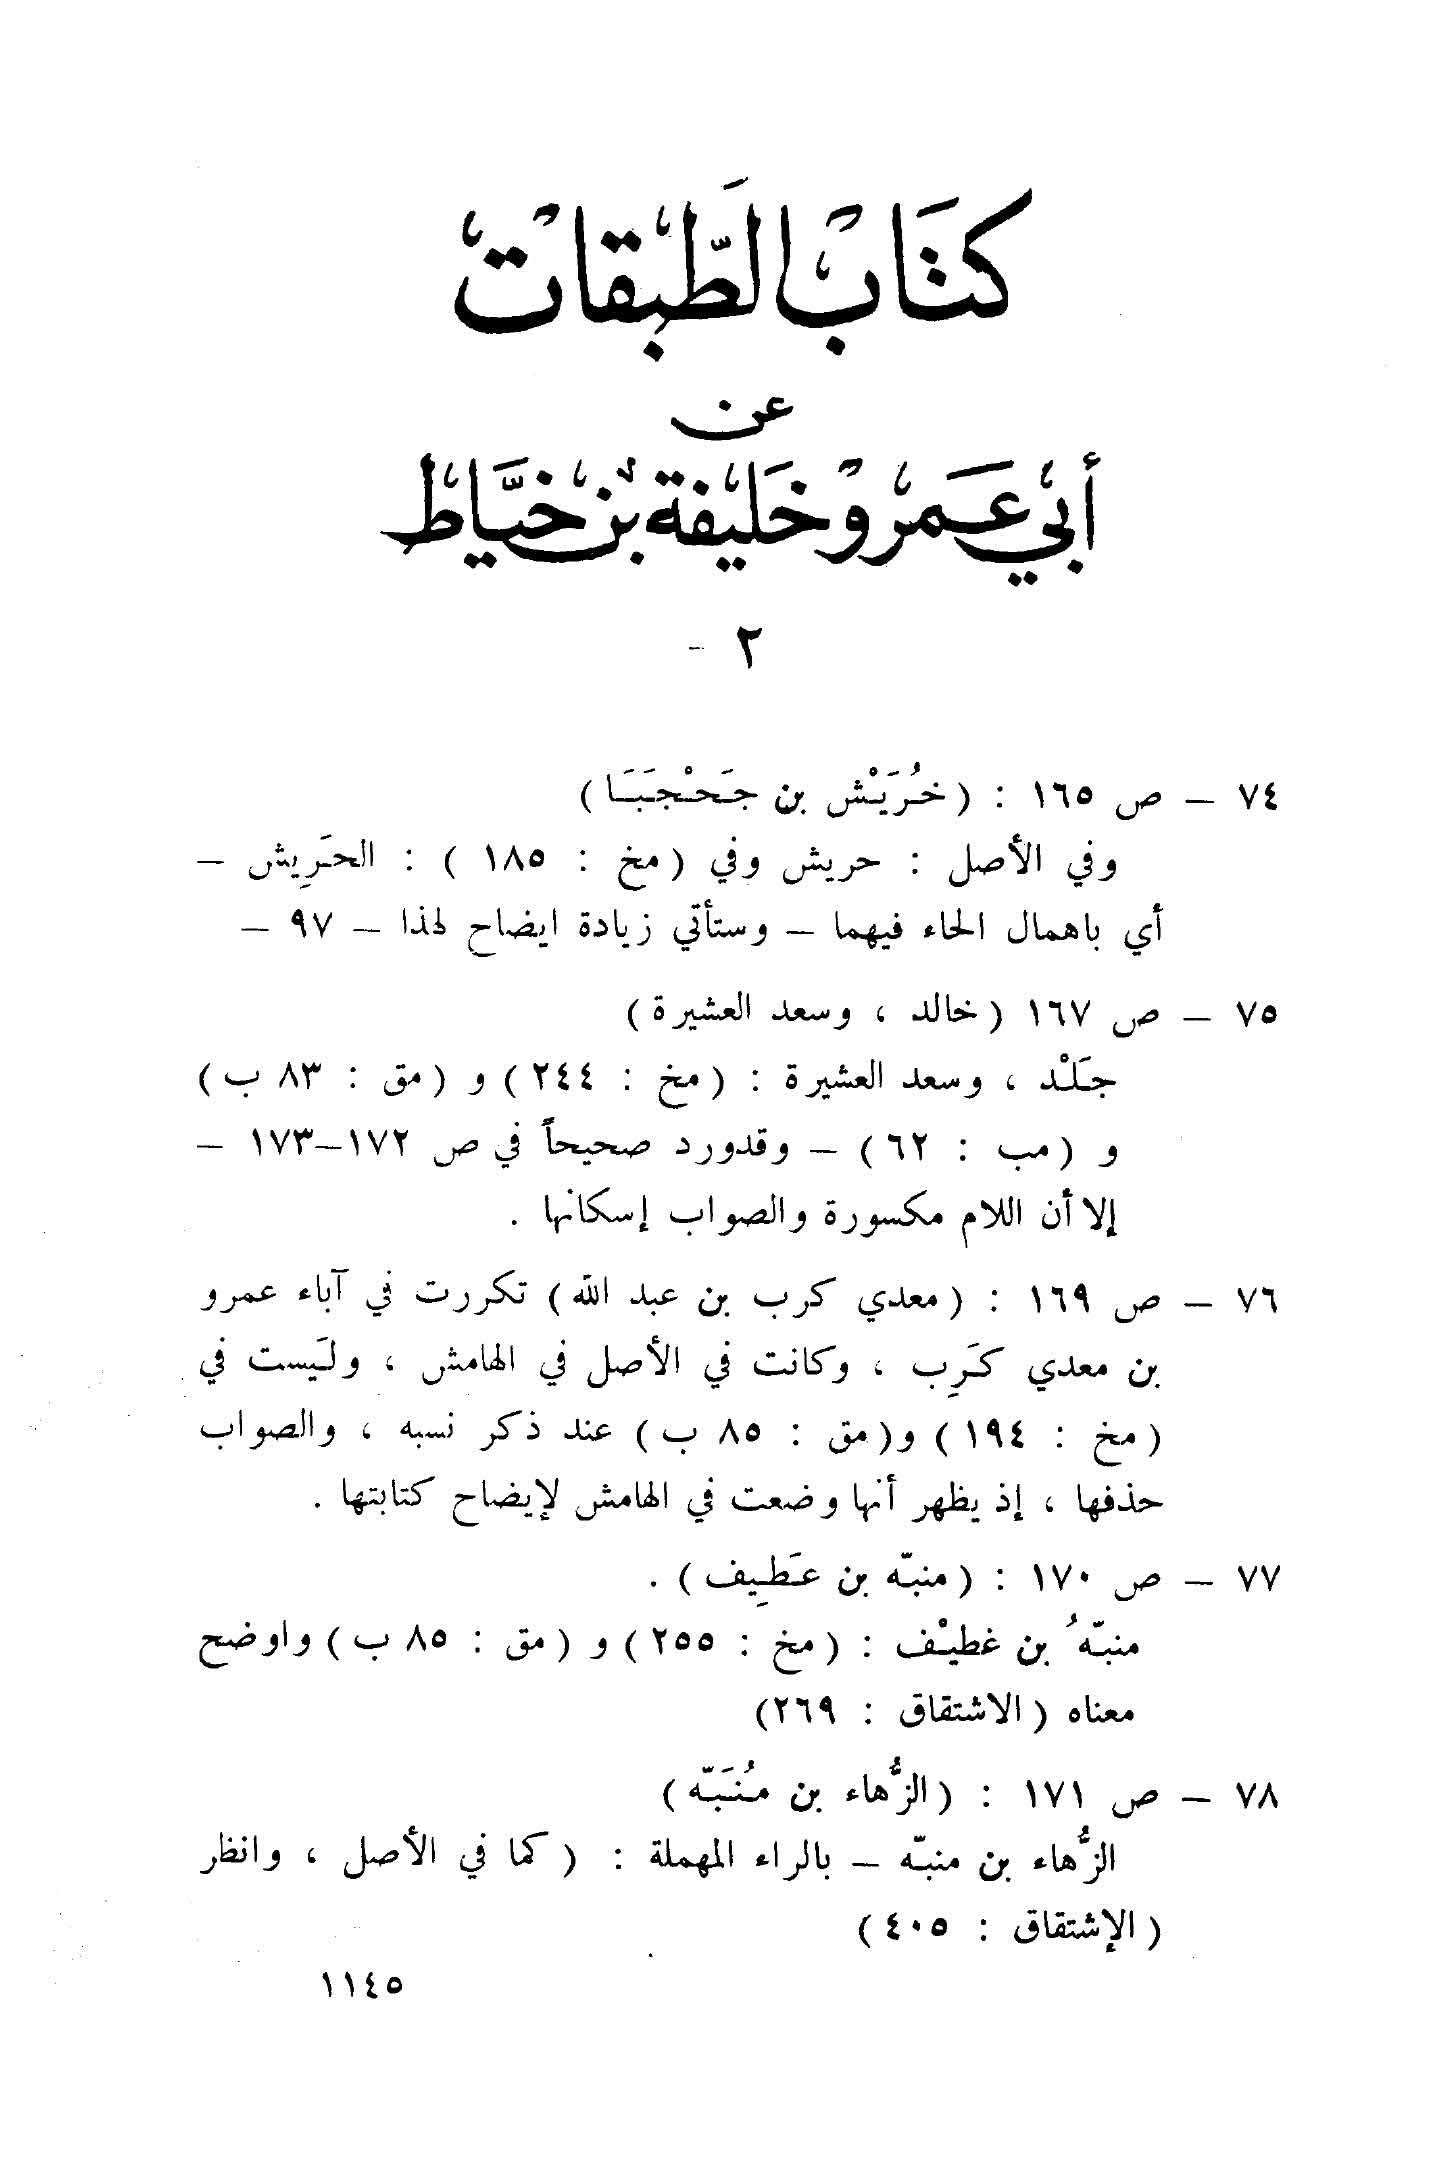 كتاب الطبقات
عن
أبي عمرو خليفة بن خياط
٢ -
٧٤ – ص ١٦٥ : (خُرَيْش بن جَحْجَبَا)
وفي الأصل : حريش وفي (مخ : ١٨٥ ) : الحَرِيش –
أي باهمال الحاء فيهما – وستأتي زيادة ايضاح لهذا – ٩٧ –
٧٥ – ص ١٦٧ (خالد ، وسعد العشيرة)
جَلْد ، وسعد العشيرة : (مخ : ٢٤٤) و (مق : ٨٣ ب)
و (مب : ٦٢) – وقدورد صحيحاً في ص ١٧٢–١٧٣ –
إلا أن اللام مكسورة والصواب إسكانها .
٧٦ – ص ١٦٩ : (معدي كرب بن عبد الله) تكررت في آباء عمرو
بن معدي كَرِب ، وكانت في الأصل في الهامش ، ولَيست في
(مخ : ١٩٤) و(مق : ٨٥ ب) عند ذكر نسبه ، والصواب
حذفها ، إذ يظهر أنها وضعت في الهامش لإيضاح كتابتها .
٧٧ – ص ١٧٠ : (منبّه بن عَطِيف) .
منبّهُ بن غطيْف : (مخ : ٢٥٥) و (مق : ٨٥ ب) واوضح
معناه (الاشتقاق : ٢٦٩)
٧٨ – ص ١٧١ : (الزُّهاء بن مُنَبّه)
الرُّهاء بن منبّه – بالراء المهملة : (كما في الأصل ، وانظر
(الإشتقاق : ٤٠٥)
١١٤٥